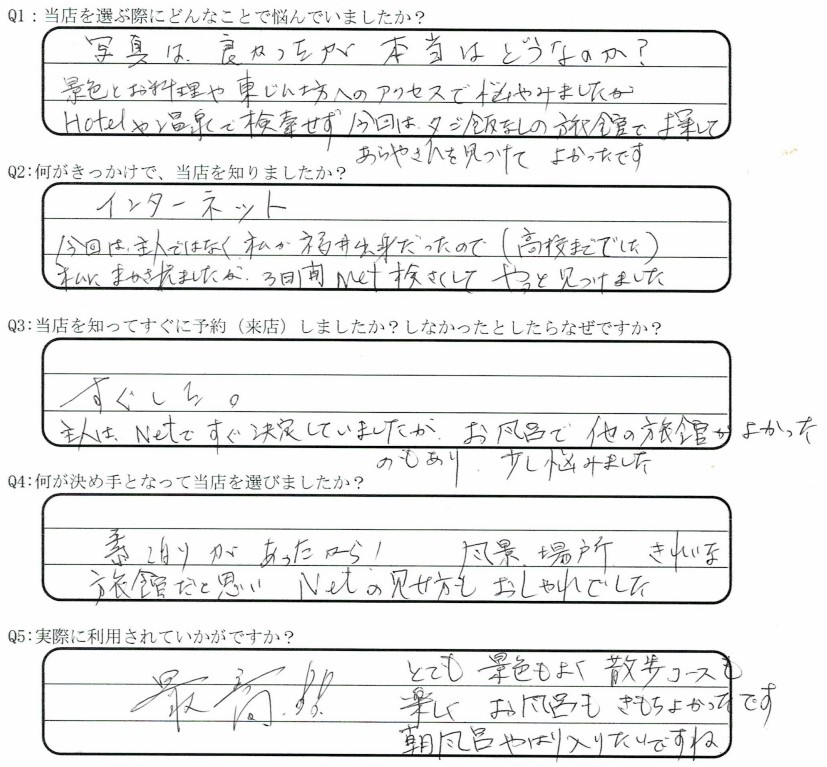 Q1：当店を選ぶ際にどんなことで悩んでいましたか？
写真は、良かったが 本当はどうなのか？
景色とお料理や東じん坊へのアクセスで悩やみましたが
Hotelや温泉で検索せず今回は、夕ご飯なしの旅館で探して
あらやさんを見つけて よかったです
Q2：何がきっかけで、当店を知りましたか？
インターネット
今回は、主人ではなく、私が福井出身だったので（高校まででした）
私にまかされましたが、3日間Net検さくして やっと見つけました
Q3：当店を知ってすぐに予約（来店）しましたか？しなかったとしたらなぜですか？
すぐした。
主人は、Netですぐ決定していましたが、お風呂で他の旅館がよかった
のもあり、少し悩みました
Q4：何が決め手となって当店を選びましたか？
素泊りがあったから！ 風景、場所 きれいな
旅館だと思い Netの見せ方も おしゃれでした
Q5：実際に利用されていかがですか？
最高!!
とても 景色もよく 散歩コースも
楽しく お風呂も きもちよかったです
朝風呂やはり入りたいですね